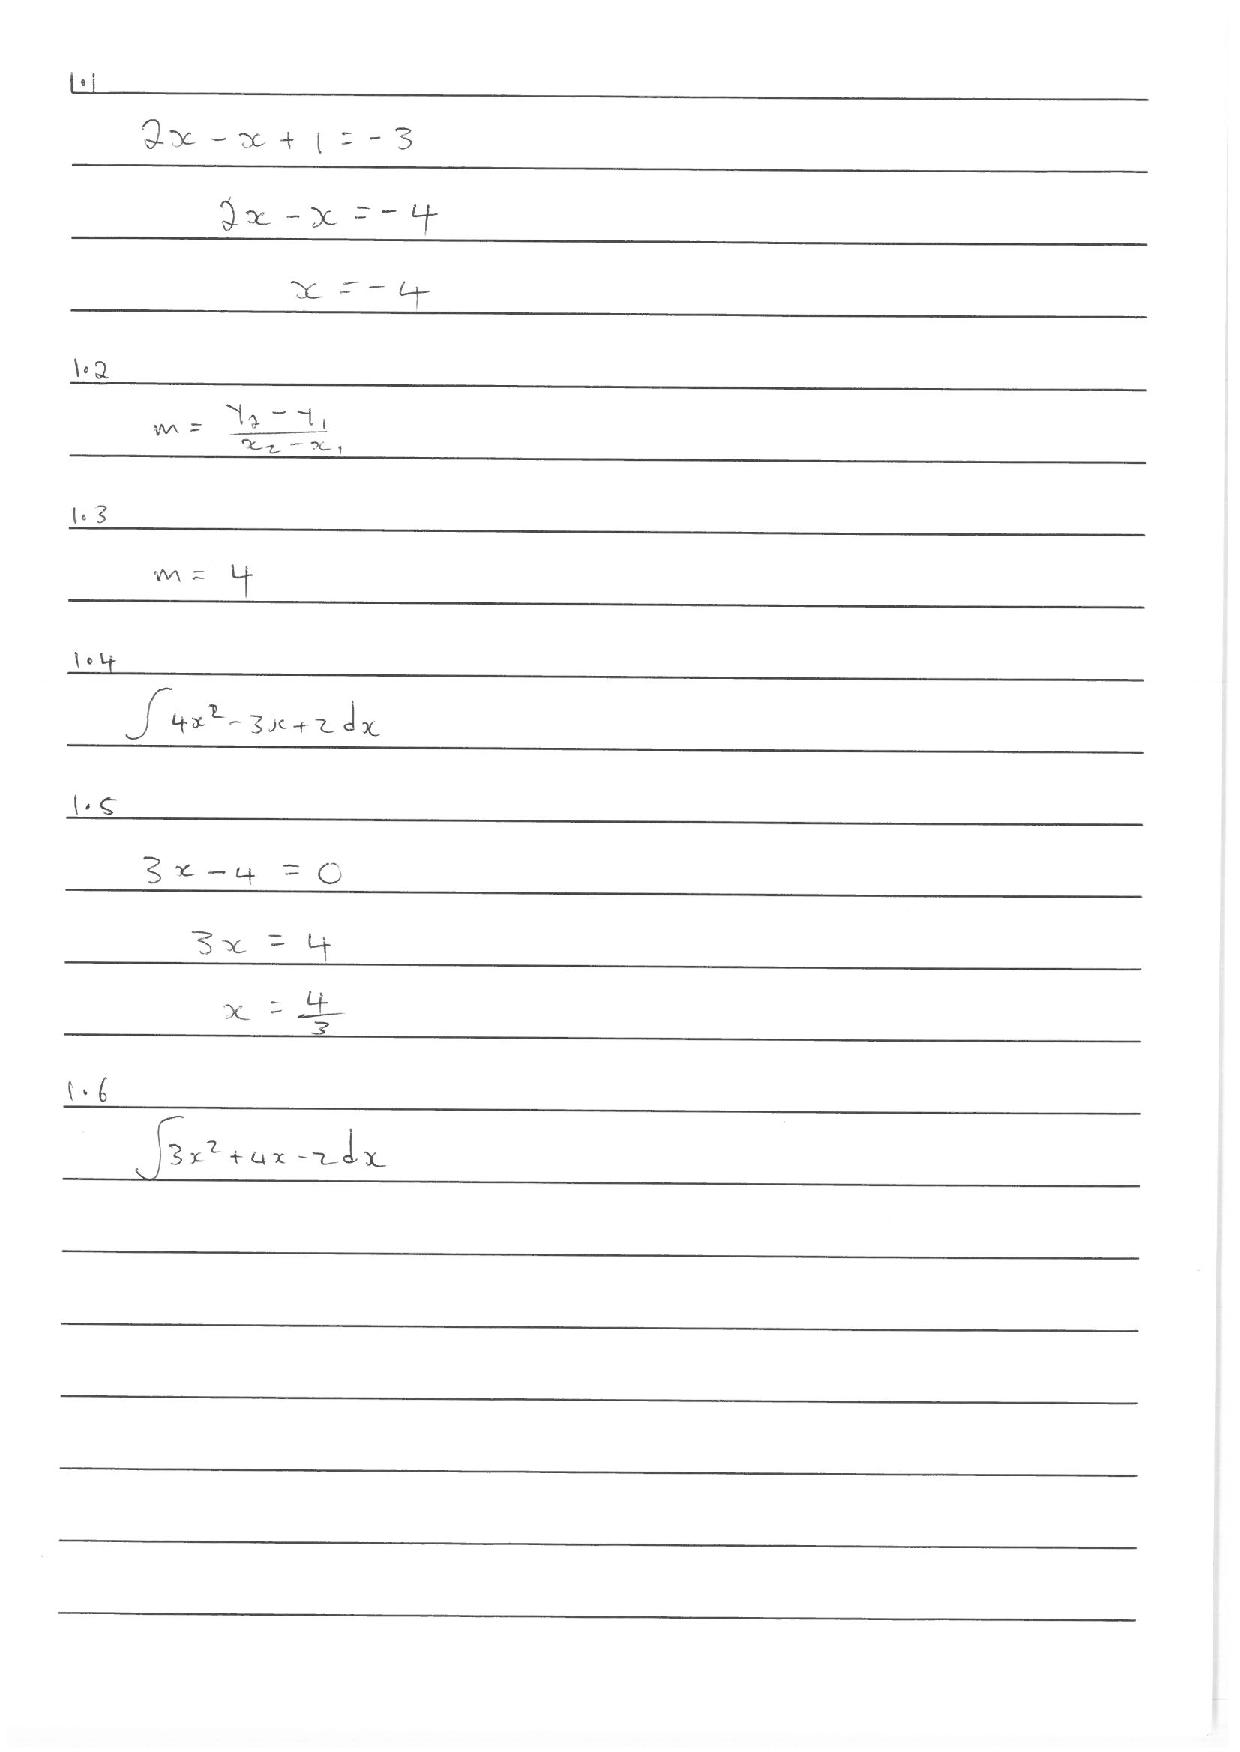 1.1
2x - x + 1 = -3
2x - x = -4
x = -4
1.2
m = \frac{y_2 - y_1}{x_2 - x_1}
1.3
m = 4
1.4
∫4x² - 3x + 2 dx
1.5
3x - 4 = 0
3x = 4
x = \frac{4}{3}
1.6
∫3x² + 4x - 2 dx